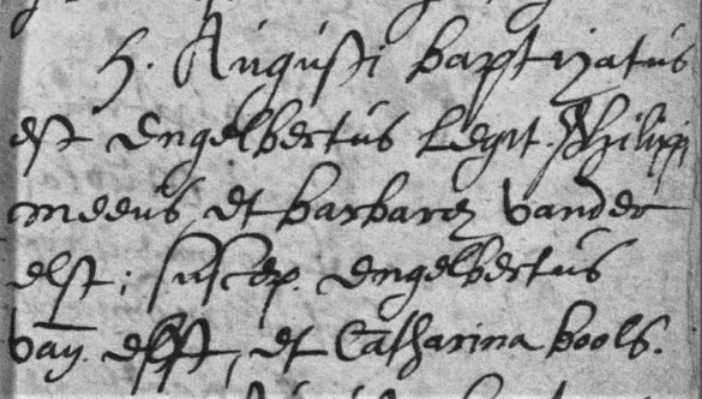 5. Augusti baptizatus
est Engelbertus Legit. Philippi
meeus et barbarae vander
elst; suscep. Engelbertus
van elst, et Catharina bools.